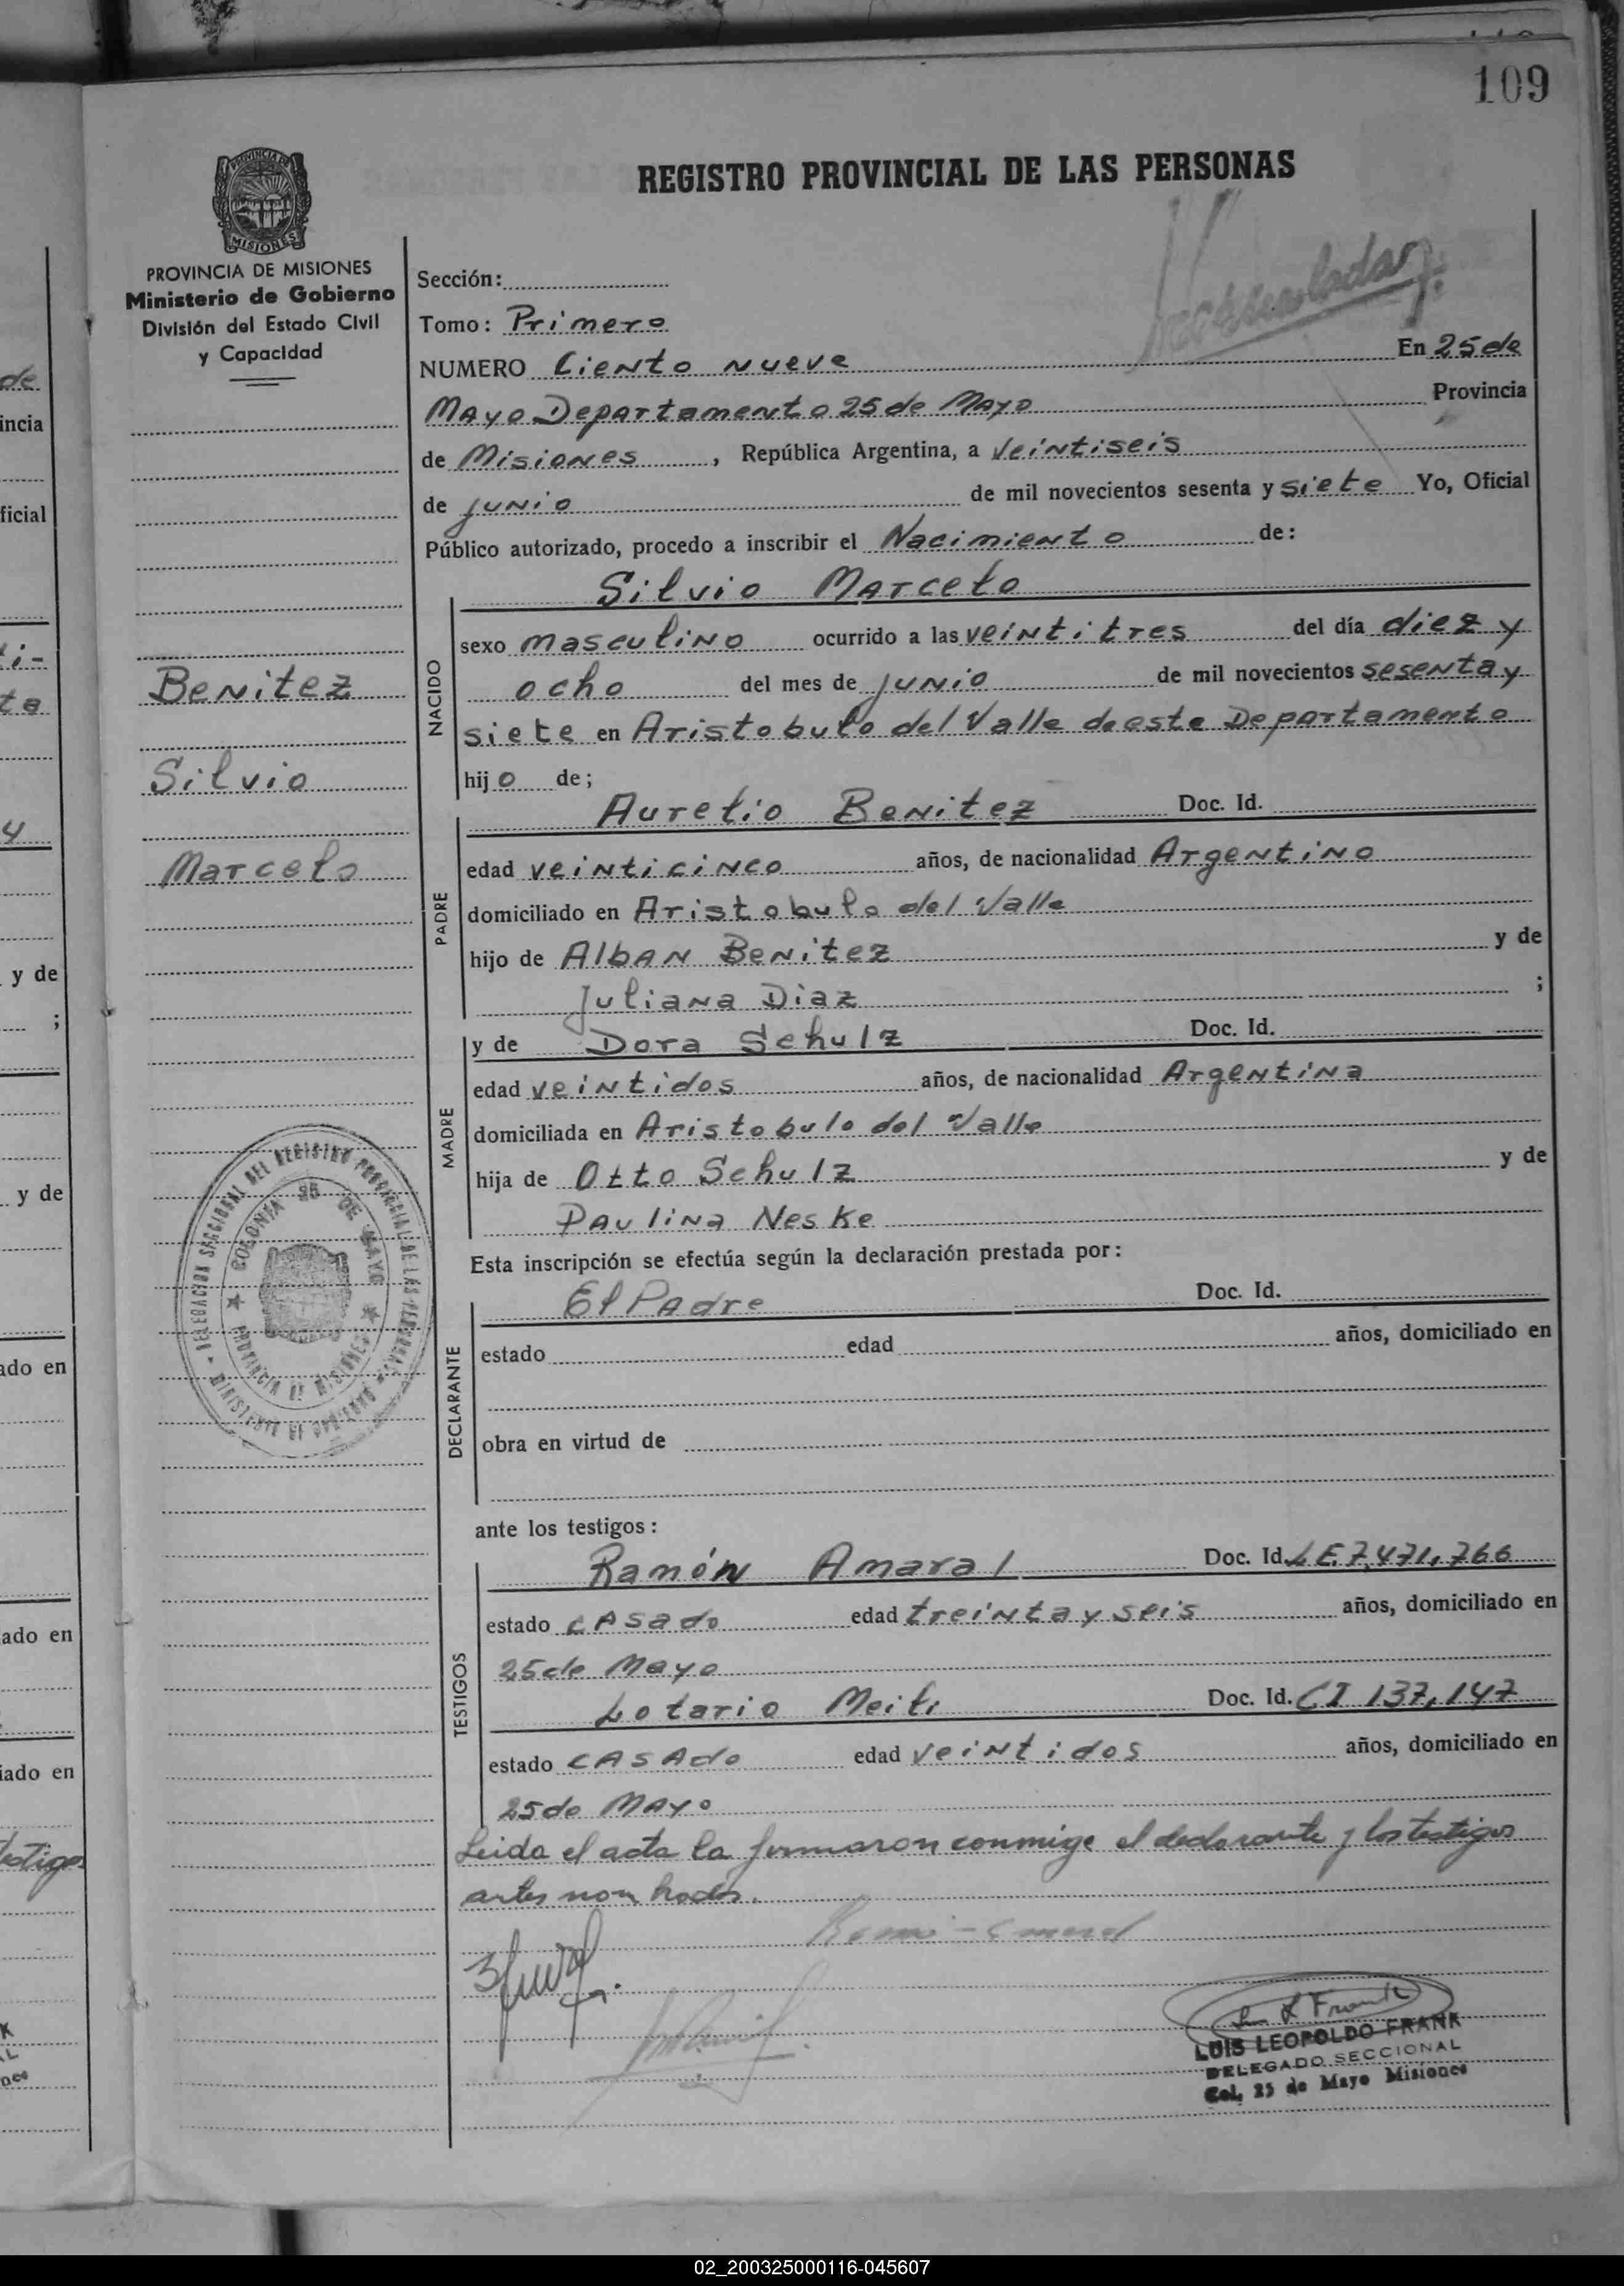 109
REGISTRO PROVINCIAL DE LAS PERSONAS
PROVINCIA DE MISIONES
Ministerio de Gobierno
División del Estado Civil
y Capacidad
Sección:
Tomo: Primero
NUMERO Ciento nueve En 25 de
Mayo Departamento 25 de Mayo Provincia
de Misiones, República Argentina, a veintiseis
de junio de mil novecientos sesenta y siete Yo, Oficial
Público autorizado, procedo a inscribir el Nacimiento de:
Silvio Marcelo
NACIDO
sexo masculino ocurrido a las veintitres del día diez y
ocho del mes de junio de mil novecientos sesenta y
siete en Aristobulo del Valle de este Departamento
hijo de;
Benitez
Silvio
Marcelo
PADRE
Aurelio Benitez Doc. Id.
edad veinticinco años, de nacionalidad Argentino
domiciliado en Aristobulo del Valle
hijo de Alban Benitez y de
Juliana Diaz ;
MADRE
y de Dora Schulz Doc. Id.
edad veintidos años, de nacionalidad Argentina
domiciliada en Aristobulo del Valle
hija de Otto Schulz y de
Paulina Neske
Esta inscripción se efectúa según la declaración prestada por:
DECLARANTE
El Padre Doc. Id.
estado edad años, domiciliado en
obra en virtud de
ante los testigos:
TESTIGOS
Ramón Amaral Doc. Id. LE 7,471,766
estado casado edad treinta y seis años, domiciliado en
25 de Mayo
Lotario Doc. Id. CI 137,147
estado casado edad veintidos años, domiciliado en
25 de Mayo
Leida el acta la firmaron conmigo el declarante y los testigos
antes nombrados.
LUIS LEOPOLDO FRANK
DELEGADO SECCIONAL
Col. 25 de Mayo Misiones
DELEGACION SECCIONAL DEL REGISTRO PROVINCIAL DE LAS PERSONAS
MINISTERIO DE GOBIERNO
COLONIA 25 DE MAYO
PROVINCIA DE MISIONES
de
incia
ficial
y de
;
y de
ado en
ado en
iado en
02_200325000116-045607